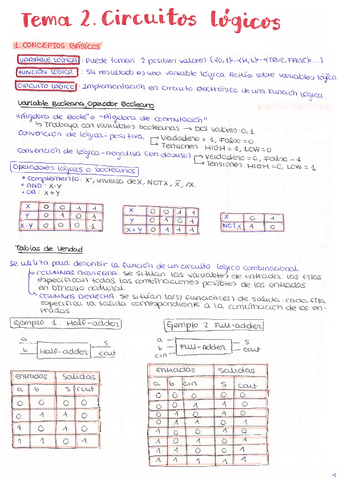 Tema 2. Circuitos lógicos
1. CONCEPTOS BÁSICOS
VARIABLE LÓGICA: Puede tomar 2 posibles valores (-10,1}, -{H,L}, -{TRUE, FALSE}...)
FUNCIÓN LÓGICA: Su resultado es una variable lógica. Actúa sobre variables lógicas
CIRCUITO LÓGICO: Implementación en circuito electrónico de una función lógica.
Variable Booleana, Operador Booleano
"Álgebra de Boole" o "Álgebra de conmutación"
↳ Trabaja con variables booleanas → Dos valores 0,1
Convención de lógica-positiva → Verdadero = 1, Falso = 0
↳ Tensiones: HIGH = 1, LOW = 0
Convención de lógica-negativa (en desuso) → Verdadero = 0, Falso = 1
↳ Tensiones: HIGH = 0, LOW = 1
Operadores lógicos o booleanos
* Complemento: X', inverso de X, NOT X, X̅, /X.
* AND: X·Y
* OR: X+Y
X 0 0 1 1
Y 0 1 0 1
X·Y 0 0 0 1
X 0 0 1 1
Y 0 1 0 1
X+Y 0 1 1 1
X 0 1
NOT X 1 0
Tablas de Verdad
Se utiliza para describir la función de un circuito lógico combinacional
COLUMNAS IZQUIERDA: se sitúan las variables de entrada, las filas
especifican todas las combinaciones posibles de las entradas
en binario natural
COLUMNAS DERECHA: se sitúan la(s) función(es) de salida. Cada fila
especifica la salida correspondiente a la combinación de las en-
tradas
Ejemplo 1. Half-adder
a
b
Half-adder
s
cout
Ejemplo 2. Full-adder
a
b
cin
Full-adder
s
cout
entradas Salidas
a b s cout
0 0 0 0
0 1 1 0
1 0 1 0
1 1 0 1
entradas Salidas
a b cin s cout
0 0 0 0 0
0 0 1 1 0
0 1 0 1 0